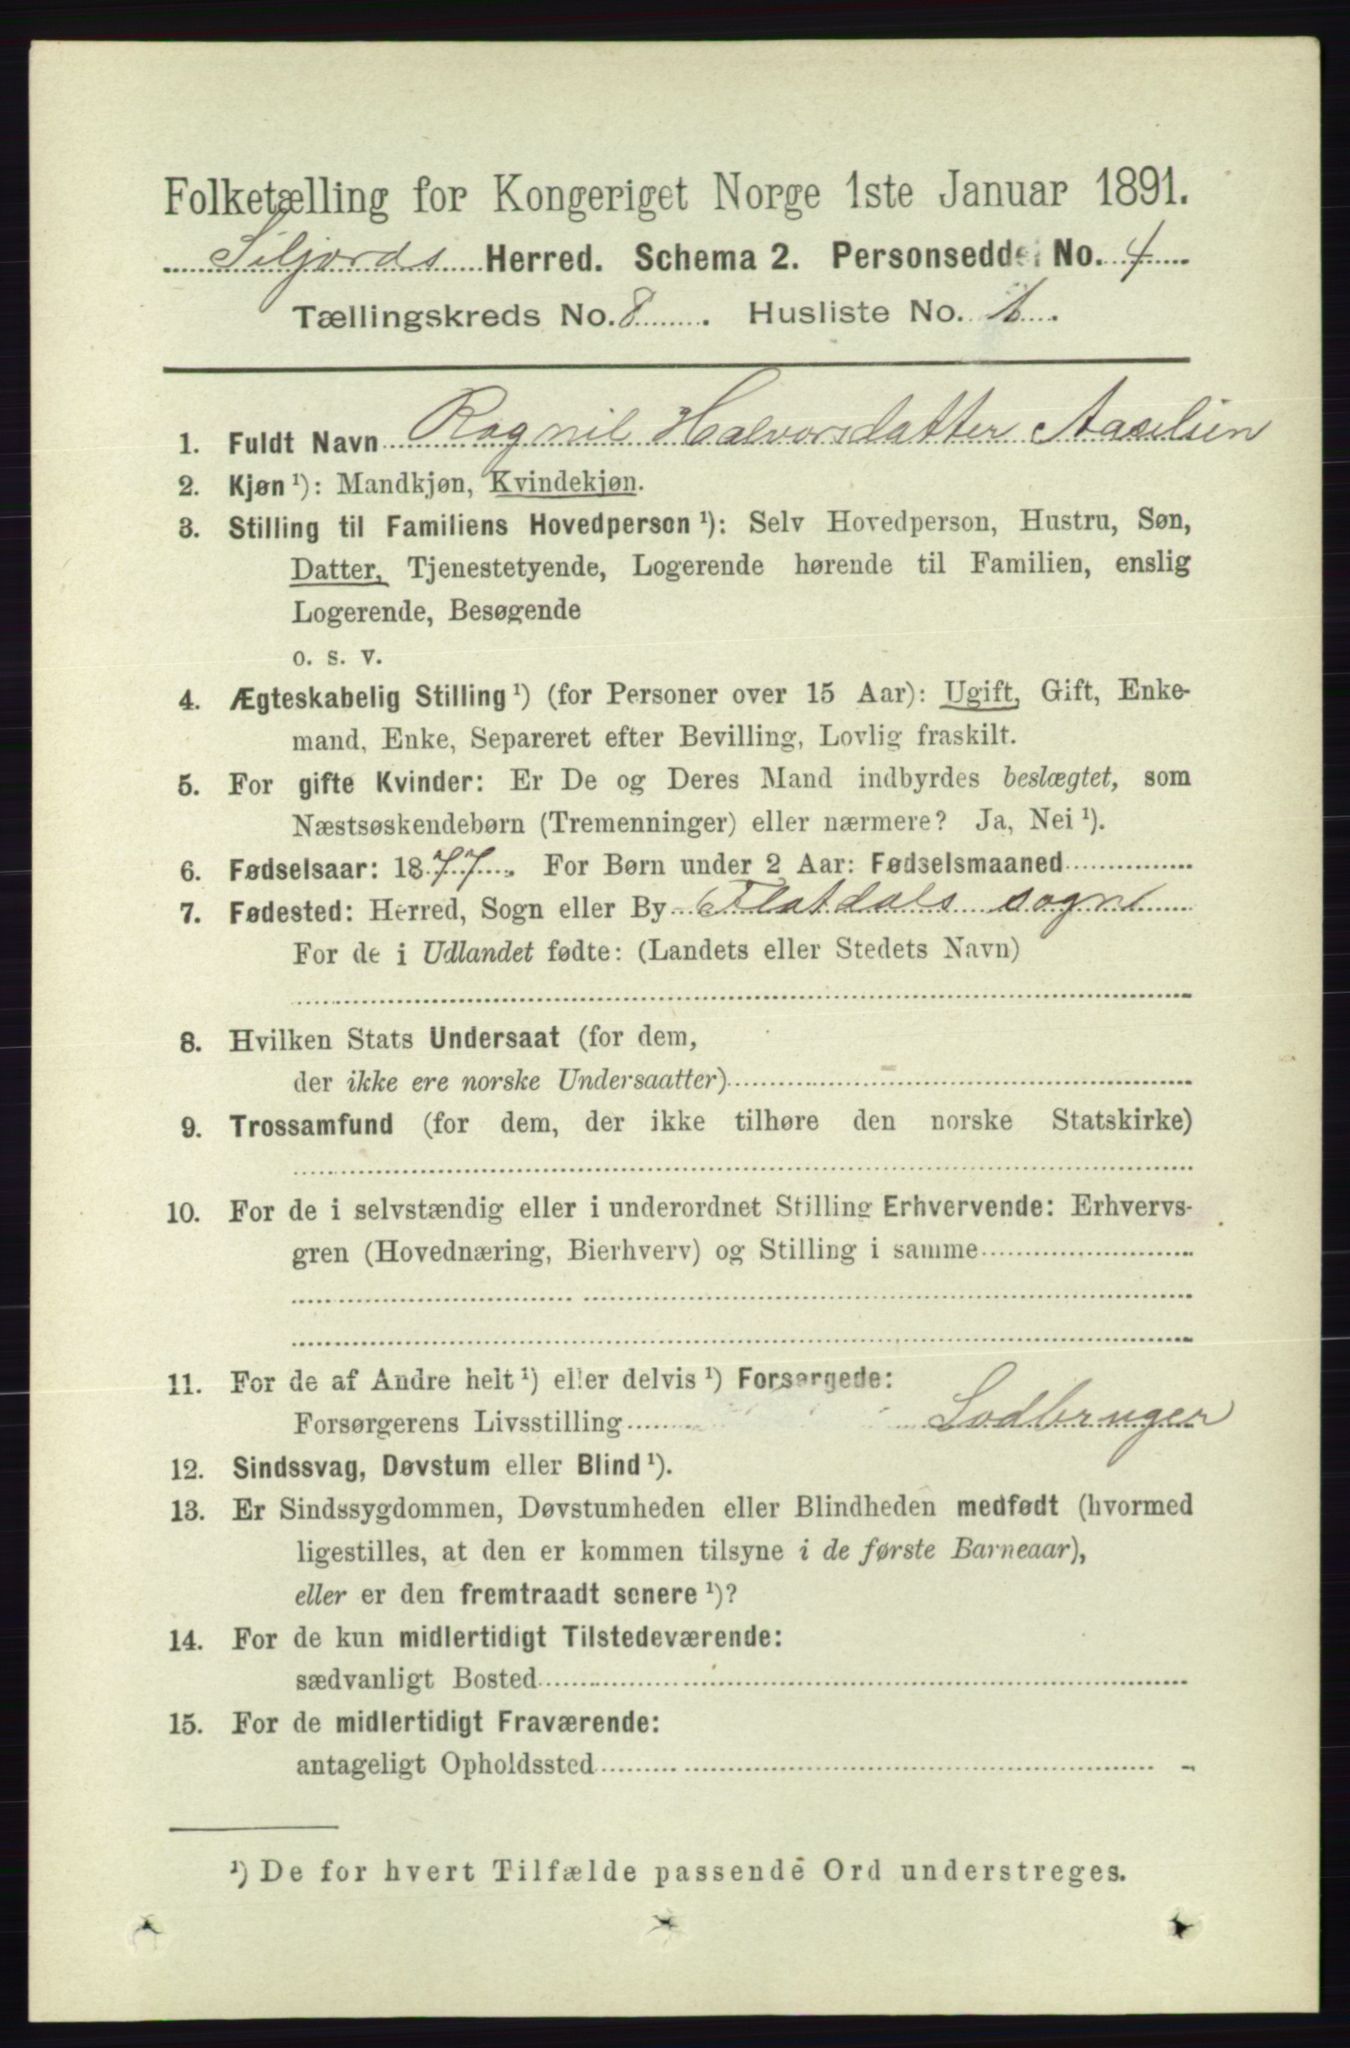 Folketælling for Kongeriget Norge 1ste Januar 1891.
Siljords Herred. Schema 2. Personseddel No. 4
Tællingskreds No. 8. Husliste No. 1.
1. Fuldt Navn Ragnil Halvorsdatter Aaselien
2. Kjøn ¹): Mandkjøn, Kvindekjøn.
3. Stilling til Familiens Hovedperson ¹): Selv Hovedperson, Hustru, Søn,
Datter, Tjenestetyende, Logerende hørende til Familien, enslig
Logerende, Besøgende
o. s. v.
4. Ægteskabelig Stilling ¹) (for Personer over 15 Aar): Ugift, Gift, Enke-
mand, Enke, Separeret efter Bevilling, Lovlig fraskilt.
5. For gifte Kvinder: Er De og Deres Mand indbyrdes beslægtet, som
Næstsøskendebørn (Tremenninger) eller nærmere? Ja, Nei ¹).
6. Fødselsaar: 1877. For Børn under 2 Aar: Fødselsmaaned
7. Fødested: Herred, Sogn eller By Flatdals sogn
For de i Udlandet fødte: (Landets eller Stedets Navn)
8. Hvilken Stats Undersaat (for dem,
der ikke ere norske Undersaatter)
9. Trossamfund (for dem, der ikke tilhøre den norske Statskirke)
10. For de i selvstændig eller i underordnet Stilling Erhvervende: Erhvervs-
gren (Hovednæring, Bierhverv) og Stilling i samme
11. For de af Andre helt ¹) eller delvis ¹) Forsørgede:
Forsørgerens Livsstilling Lodbruger
12. Sindssvag, Døvstum eller Blind ¹).
13. Er Sindssygdommen, Døvstumheden eller Blindheden medfødt (hvormed
ligestilles, at den er kommen tilsyne i de første Barneaar),
eller er den fremtraadt senere ¹)?
14. For de kun midlertidigt Tilstedeværende:
sædvanligt Bosted
15. For de midlertidigt Fraværende:
antageligt Opholdssted
¹) De for hvert Tilfælde passende Ord understreges.